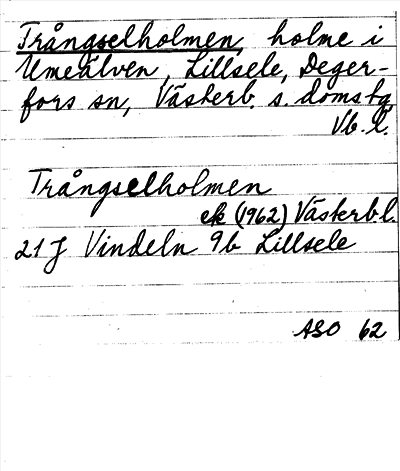 Trångselholmen, holme i
Umeälven, Lillsele, Deger-
fors sn, Västerb. s. doms tg
Vb. l.
Trångselholmen
ek (1962) Västerb l.
21 J Vindeln 9b Lillsele
ASO 62